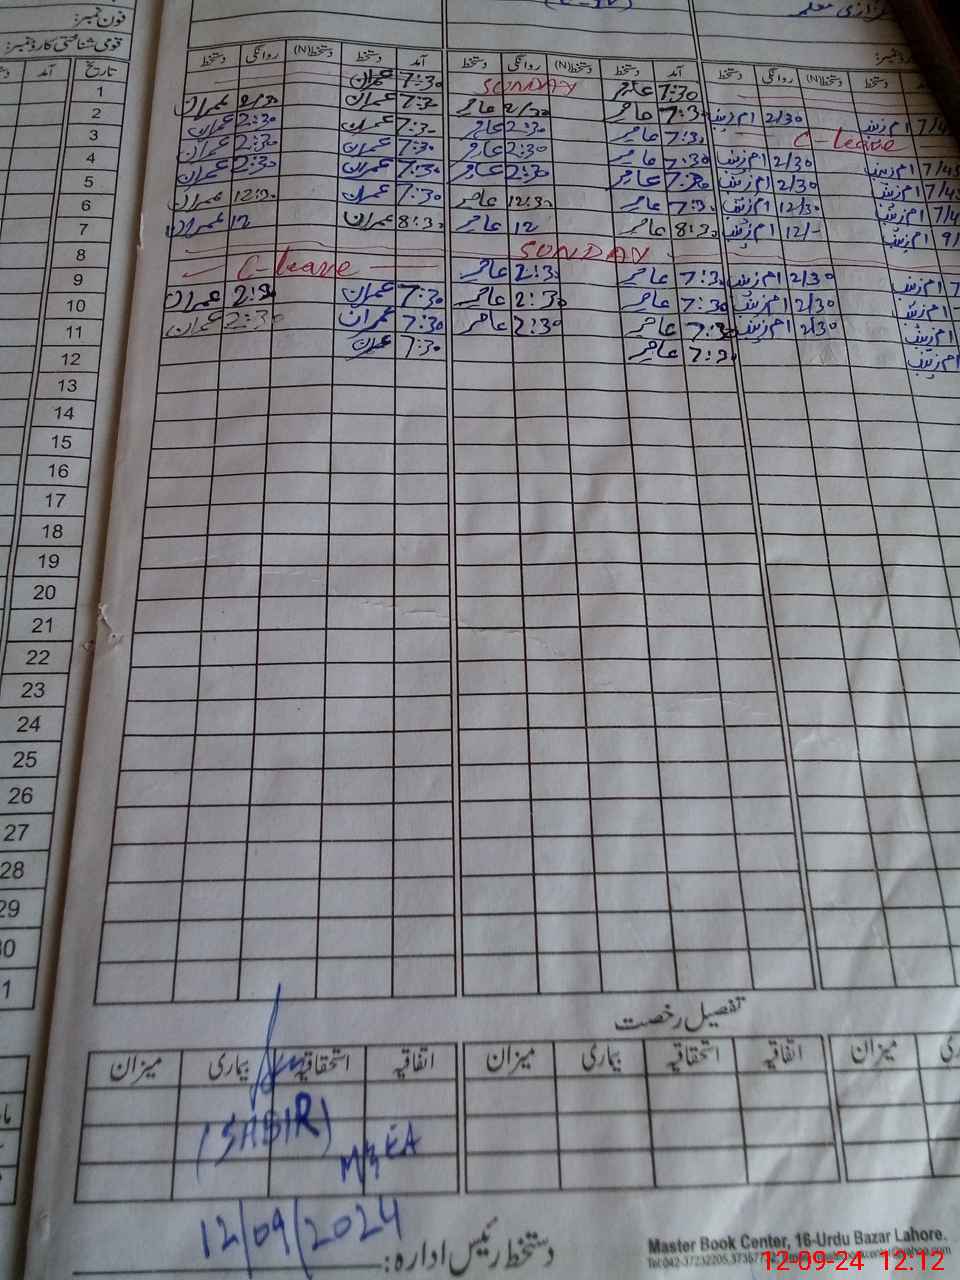 فون نمبر:
قومی شناختی کارڈ نمبر:
آمد تاریخ
دستخط روانگی دستخط(N) دستخط آمد دستخط روانگی دستخط(N) دستخط آمد دستخط روانگی دستخط(N) دستخط
1 عمران 7:30 SUNDAY عامر 7:30
2 عمران 2/30 عمران 7:30 عامر 2/30 عامر 7:30 ام زینب 2/30 ام زینب 7/45
3 عمران 2:30 عمران 7:30 عامر 2:30 عامر 7:30 C-leave
4 عمران 2:30 عمران 7:30 عامر 2:30 عامر 7:30 ام زینب 2/30 ام زینب 7/45
5 عمران 2:30 عمران 7:30 عامر 2:30 عامر 7:30 ام زینب 2/30 ام زینب
6 عمران 12:30 عمران 7:30 عامر 12:30 عامر 7:30 ام زینب 12/30 ام زینب
7 عمران 12 عمران 8:30 عامر 12 عامر 8:30 ام زینب 12/- ام زینب
8 SUNDAY
9 C-leave عامر 2:30 عامر 7:30 ام زینب 2/30 ام زینب
10 عمران 2:30 عمران 7:30 عامر 2:30 عامر 7:30 ام زینب 2/30
11 عمران 2:30 عمران 7:30 عامر 2:30 عامر 7:30 ام زینب 2/30
12 عمران 7:30 عامر 7:30
13
14
15
16
17
18
19
20
21
22
23
24
25
26
27
28
29
30
1
تفصیل رخصت
میزان بیماری استحقاقیہ اتفاقیہ میزان بیماری استحقاقیہ اتفاقیہ میزان
(SABIR)
MEA
12/09/2024
دستخط رئیس ادارہ:
Master Book Center, 16-Urdu Bazar Lahore.
12-09-24 12:12